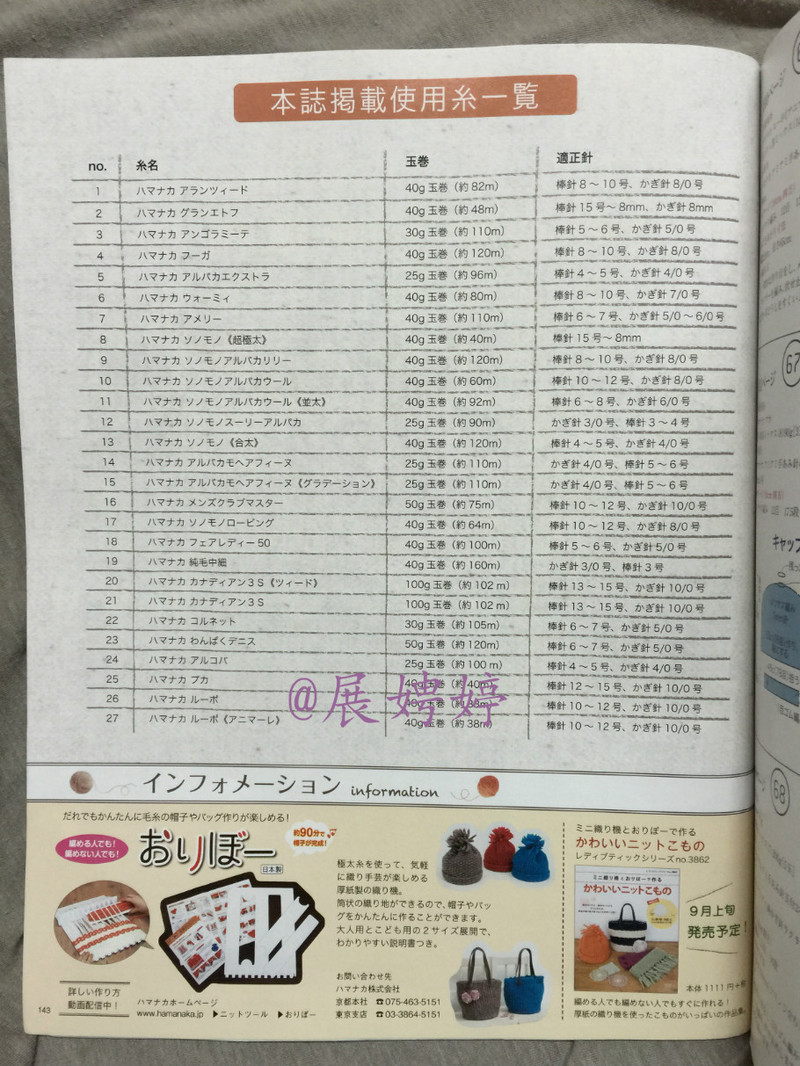 本誌掲載使用糸一覧
no. 糸名 玉巻 適正針
1 ハマナカ アランツィード 40g 玉巻（約 82m） 棒針 8 〜 10 号、かぎ針 8/0 号
2 ハマナカ グランエトフ 40g 玉巻（約 48m） 棒針 15 号〜 8mm、かぎ針 8mm
3 ハマナカ アンゴラミーテ 30g 玉巻（約 110m） 棒針 5 〜 6 号、かぎ針 5/0 号
4 ハマナカ フーガ 40g 玉巻（約 120m） 棒針 8 〜 10 号、かぎ針 8/0 号
5 ハマナカ アルパカエクストラ 25g 玉巻（約 96m） 棒針 4 〜 5 号、かぎ針 4/0 号
6 ハマナカ ウォーミィ 40g 玉巻（約 80m） 棒針 8 〜 10 号、かぎ針 7/0 号
7 ハマナカ アメリー 40g 玉巻（約 110m） 棒針 6 〜 7 号、かぎ針 5/0 〜 6/0 号
8 ハマナカ ソノモノ《超極太》 40g 玉巻（約 40m） 棒針 15 号〜 8mm
9 ハマナカ ソノモノアルパカリリー 40g 玉巻（約 120m） 棒針 8 〜 10 号、かぎ針 8/0 号
10 ハマナカ ソノモノアルパカウール 40g 玉巻（約 60m） 棒針 10 〜 12 号、かぎ針 8/0 号
11 ハマナカ ソノモノアルパカウール《並太》 40g 玉巻（約 92m） 棒針 6 〜 8 号、かぎ針 6/0 号
12 ハマナカ ソノモノスーリーアルパカ 25g 玉巻（約 90m） かぎ針 3/0 号、棒針 3 〜 4 号
13 ハマナカ ソノモノ《合太》 40g 玉巻（約 120m） 棒針 4 〜 5 号、かぎ針 4/0 号
14 ハマナカ アルパカモヘアフィーヌ 25g 玉巻（約 110m） かぎ針 4/0 号、棒針 5 〜 6 号
15 ハマナカ アルパカモヘアフィーヌ《グラデーション》 25g 玉巻（約 110m） かぎ針 4/0 号、棒針 5 〜 6 号
16 ハマナカ メンズクラブマスター 50g 玉巻（約 75m） 棒針 10 〜 12 号、かぎ針 10/0 号
17 ハマナカ ソノモノロービング 40g 玉巻（約 64m） 棒針 10 〜 12 号、かぎ針 8/0 号
18 ハマナカ フェアレディー 50 40g 玉巻（約 100m） 棒針 5 〜 6 号、かぎ針 5/0 号
19 ハマナカ 純毛中細 40g 玉巻（約 160m） かぎ針 3/0 号、棒針 3 号
20 ハマナカ カナディアン３Ｓ《ツィード》 100g 玉巻（約 102 m） 棒針 13 〜 15 号、かぎ針 10/0 号
21 ハマナカ カナディアン３Ｓ 100g 玉巻（約 102 m） 棒針 13 〜 15 号、かぎ針 10/0 号
22 ハマナカ コルネット 30g 玉巻（約 105m） 棒針 6 〜 7 号、かぎ針 5/0 号
23 ハマナカ わんぱくデニス 50g 玉巻（約 120m） 棒針 6 〜 7 号、かぎ針 5/0 号
24 ハマナカ アルコバ 25g 玉巻（約 100 m） 棒針 4 〜 5 号、かぎ針 4/0 号
25 ハマナカ プカ 40g 玉巻（約 40m） 棒針 12 〜 15 号、かぎ針 10/0 号
26 ハマナカ ルーポ 40g 玉巻（約 38m） 棒針 10 〜 12 号、かぎ針 10/0 号
27 ハマナカ ルーポ《アニマーレ》 40g 玉巻（約 38m） 棒針 10 〜 12 号、かぎ針 10/0 号
@展娉婷
インフォメーション information
だれでもかんたんに毛糸の帽子やバッグ作りが楽しめる！
編める人でも！
編めない人でも！
おりぼー
日本製
約90分で
帽子が完成！
極太糸を使って、気軽
に織り手芸が楽しめる
厚紙製の織り機。
筒状の織り地ができるので、帽子やバッ
グをかんたんに作ることができます。
大人用とこども用の２サイズ展開で、
わかりやすい説明書つき。
お問い合わせ先
ハマナカ株式会社
京都本社 ☎075-463-5151
東京支店 ☎03-3864-5151
詳しい作り方
動画配信中！
ハマナカホームページ
www.hamanaka.jp ▶ニットツール ▶おりぼー
143
ミニ織り機とおりぼーで作る
かわいいニットこもの
レディブティックシリーズno.3862
ミニ織り機とおりぼーで作る
かわいいニットこもの
9月上旬
発売予定！
本体 1111 円＋税
編める人でも編めない人でもすぐに作れる！
厚紙の織り機を使ったこものがいっぱいの作品集。
ページ
67
ページ
キャップ
68